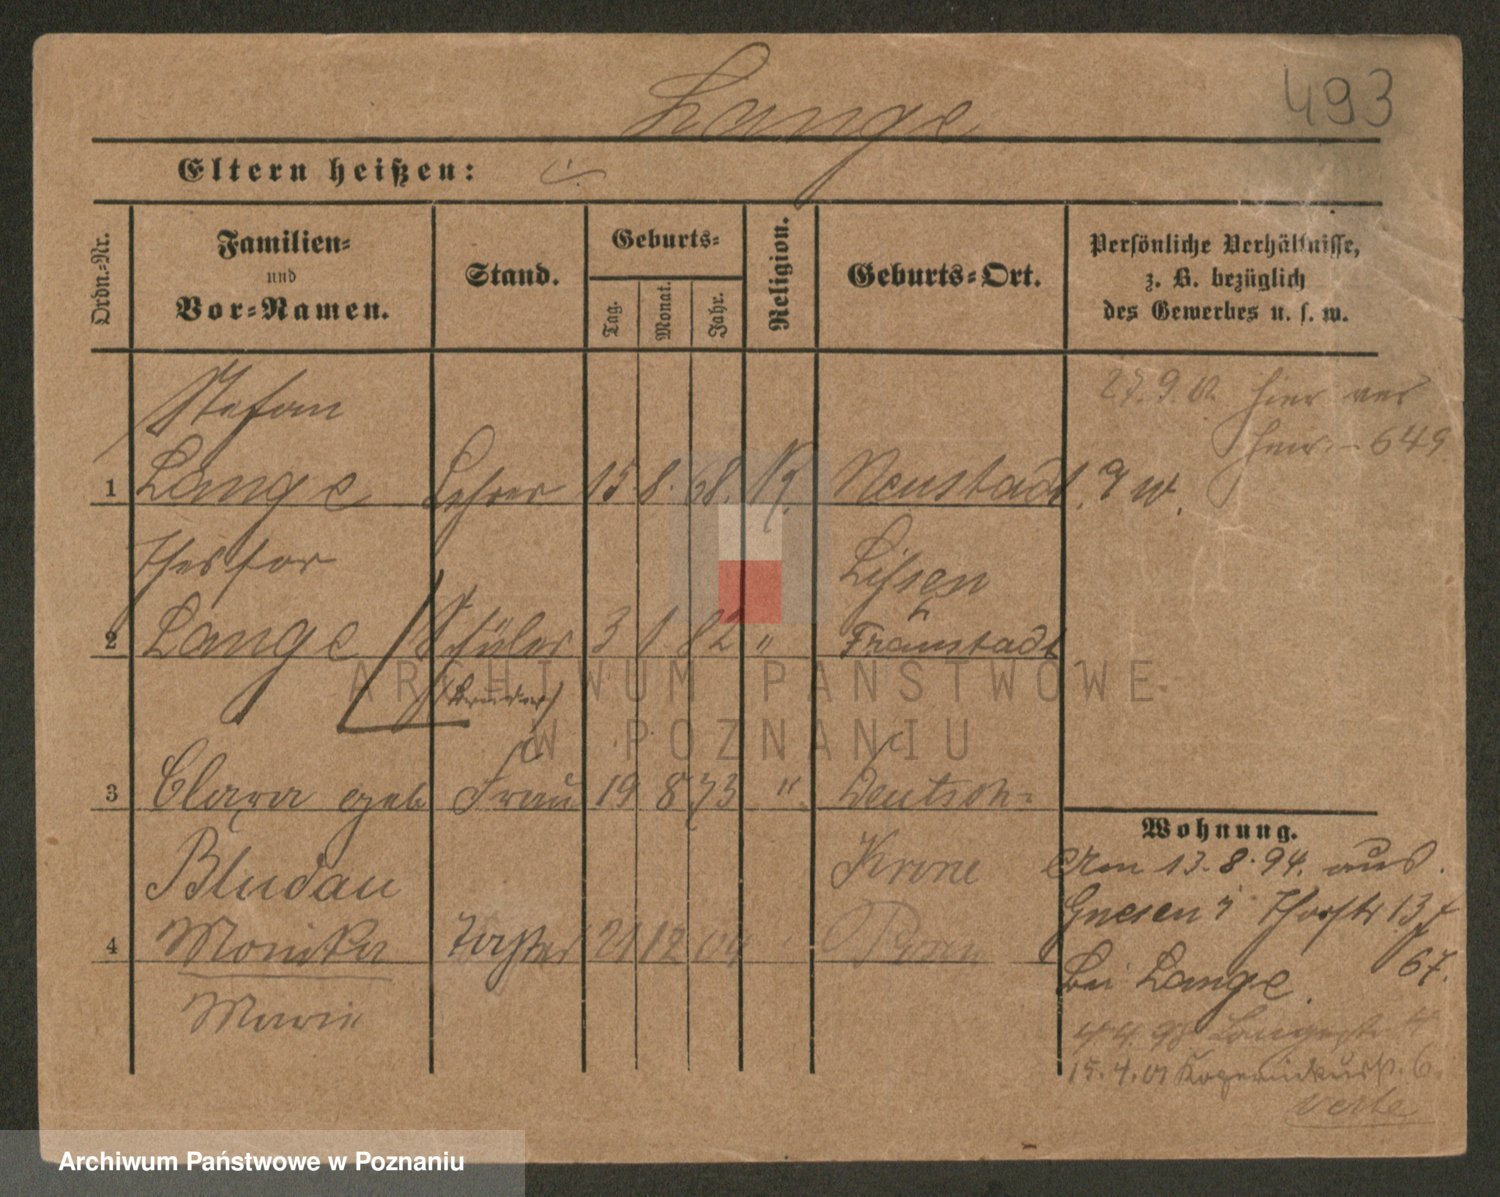 493
Lange
Eltern heißen:
Ordn.-Nr.
Familien-
und
Vor-Namen.
Stand.
Geburts-
Tag.
Monat.
Jahr.
Religion.
Geburts-Ort.
Persönliche Verhältnisse,
z. B. bezüglich
des Gewerbes u. s. w.
Stefan
27.9. hier
649
1 Lange Lehrer 15 8. 68. K. Neustadt a/W.
Lissen
2 Lange Schüler 3 1 82 " Fraustadt
(Bruder)
3 Clara geb Frau 19 8 73 " Deutsch-
Bludau
Krone
Wohnung.
Am 13.8.94. aus
Gnesen
4 Monika Tochter 21 12 04 Posen
bei Lange.
67.
Marie
4 4 98 Langestr 4
15.4.01 Kopernikusstr. 6.
verte
ARCHIWUM PAŃSTWOWE
W POZNANIU
Archiwum Państwowe w Poznaniu